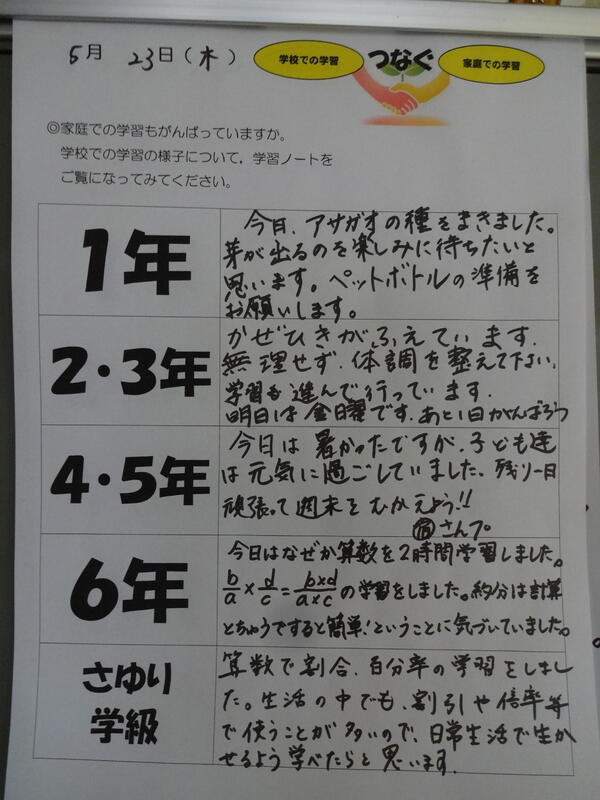 5月 23日(木)
学校での学習 つなぐ 家庭での学習
◎家庭での学習もがんばっていますか。
学校での学習の様子について,学習ノートを
ご覧になってみてください。
1年
今日、アサガオの種をまきました。
芽が出るのを楽しみに待ちたいと
思います。ペットボトルの準備を
お願いします。
2・3年
かぜひきがふえています.
無理せず、体調を整えて下さい.
学習も進んで行っています.
明日は金曜です.あと1日がんばろう
4・5年
今日は暑かったですが、子ども達
は元気に過ごしていました。残り一日
頑張って週末をむかえよう!!
宿 さんプ
6年
今日はなぜか算数を2時間学習しました。
b/a×d/c=b×d/a×cの学習をしました。約分は計算
とちゅうですると簡単!ということに気づいていました。
さゆり
学級
算数で割合、百分率の学習をしまし
た。生活の中でも、割引や倍率等
で使うことが多いので、日常生活で生か
せるよう学べたらと思います.